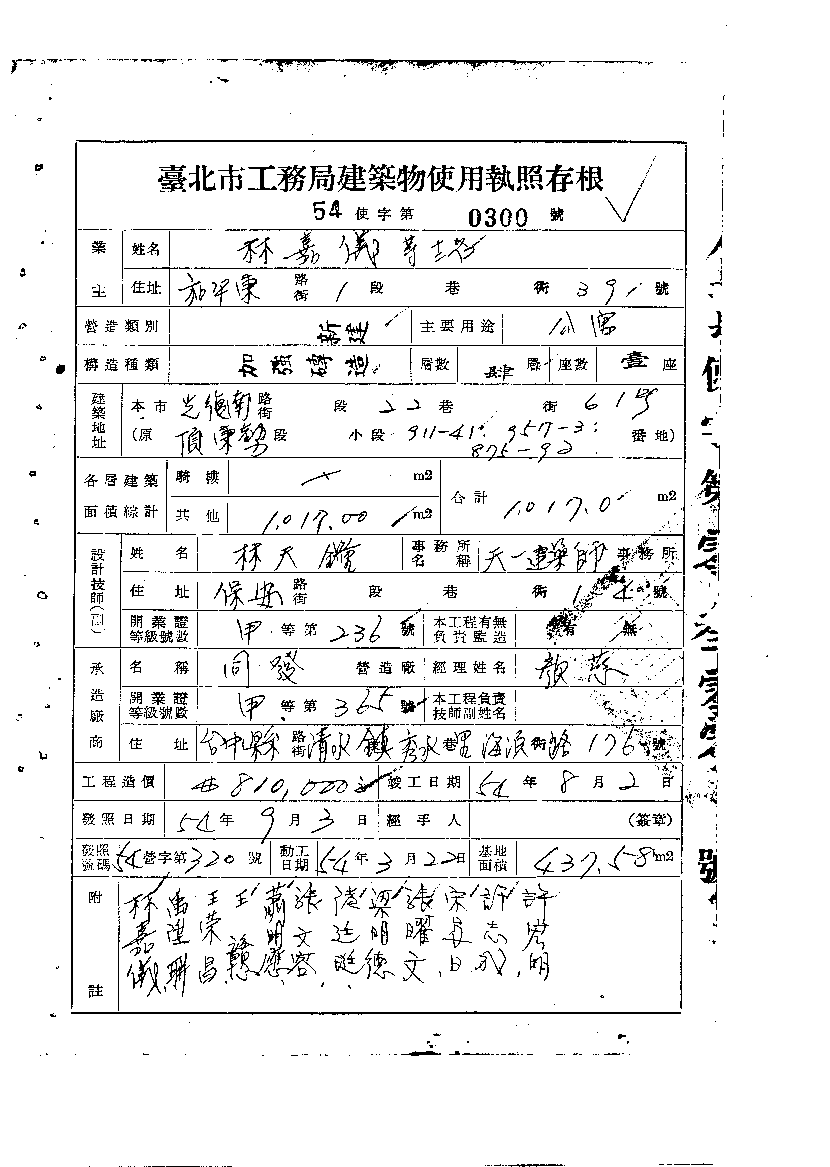 臺北市工務局建築物使用執照存根
54 使字第 0300 號
業主 姓名 林嘉儀等
住址 路街 1 段 巷 街 391 號
營造類別 新建 主要用途 公寓
構造種類 加強磚造 層數 肆 層 座數 壹 座
建築地址 本市 光復南 路街 段 22 巷 街 6 1號
(原 頂東勢 段 小段 911-41. 957-3: 875-92 番地)
各層建築面積綜計 騎樓 m2 合計 1,017.0 m2
其他 1,017.00 m2
設計技師(副) 姓名 林天 事務所名稱 天一建築師 事務所
住址 保安 路街 段 巷 街 號
開業證等級號數 甲 等第 236 號 本工程有無負責監造 有 無
承造廠商 名稱 同發 營造廠 經理姓名
開業證等級號數 甲 等第 365 號 本工程負責技師副姓名
住址 台中縣 路街 清水鎮 秀水里 巷 海濱 街路 176 號
工程造價 810,000 竣工日期 54 年 8 月 2 日
發照日期 54 年 9 月 3 日 經手人 (簽章)
發照號碼 54 營字第 320 號 動工日期 54 年 3 月 22 日 基地面積 437.58 m2
附註 林嘉儀 王荣昌 張文 梁明德 張曜文 許志 許宏明